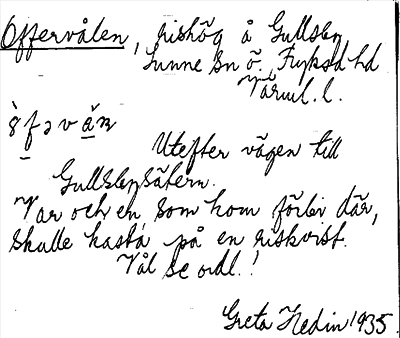 Offervålen, rishög å Gullsby
Sunne sn Ö. Fryksd hd
Värml. l.
Utefter vägen till
Gullsbysätern.
Var och en som kom förbi där,
skulle kasta på en riskvist.
Vål se ordl.!
Greta Hedin 1935